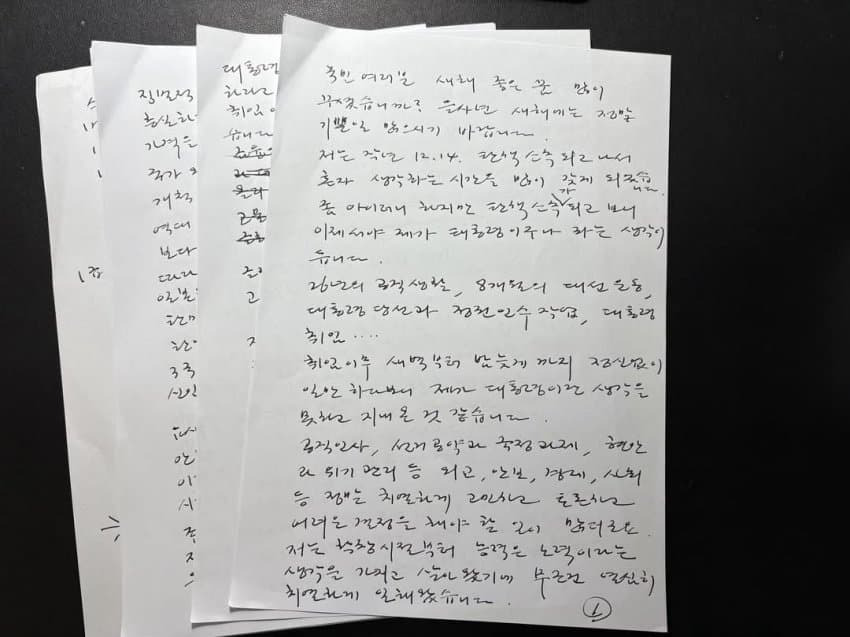 가격은
개척
역대
보다
대통령
하라고
취임
습니다
국민 여러분 새해 좋은 꿈 많이
꾸셨습니까? 을사년 새해에는 정말
기쁜일 많으시기 바랍니다.
저는 작년 12.14. 탄핵소추 되고 나서
혼자 생각하는 시간을 많이 갖게 되었습니다.
좀 아이러니 하지만 탄핵소추가 되고 보니
이제서야 제가 대통령이구나 하는 생각이
듭니다.
26년의 공직생활, 8개월의 대선 운동,
대통령 당선과 정권인수 작업, 대통령
취임....
취임이후 새벽부터 밤늦게 까지 정신없이
일만 하다보니 제가 대통령이란 생각을
못하고 지내 온 것 같습니다.
공직인사, 선거공약과 국정과제, 현안
과 위기 관리 등 외교, 안보, 경제, 사회
등 정말 치열하게 고민하고 토론하고
어려운 결정을 해야 할 일이 많더군요.
저는 학창시절부터 능력은 노력이라는
생각을 가지고 살아왔기에 무조건 열심히
치열하게 일해왔습니다.
1